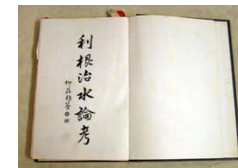 利根治水論考